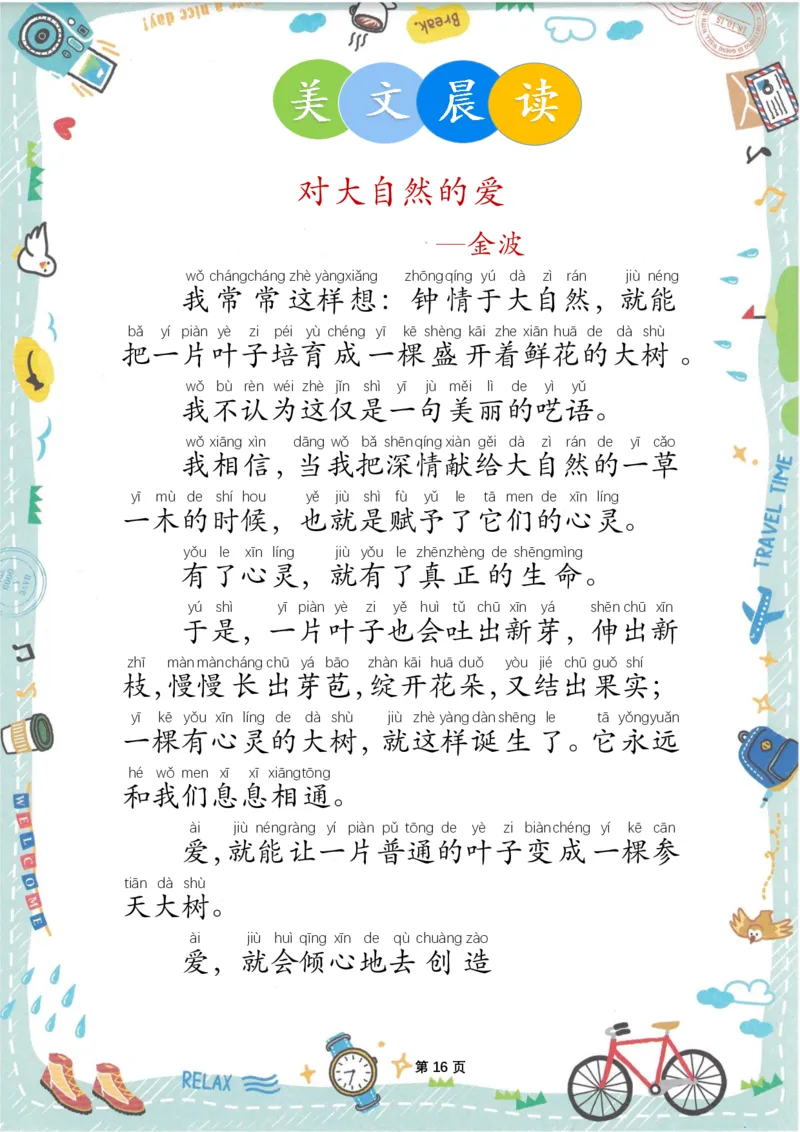 have a nice day!
Break.
18.10.15
美文晨读
对大自然的爱
—金波
wǒ chángcháng zhè yàngxiǎng zhōngqíng yú dà zì rán jiù néng
我常常这样想：钟情于大自然，就能
bǎ yí piàn yè zi péi yù chéng yī kē shèng kāi zhe xiān huā de dà shù
把一片叶子培育成一棵盛开着鲜花的大树。
wǒ bù rèn wéi zhè jǐn shì yī jù měi lì de yì yǔ
我不认为这仅是一句美丽的呓语。
wǒ xiāng xìn dāng wǒ bǎ shēnqíng xiàn gěi dà zì rán de yī cǎo
我相信，当我把深情献给大自然的一草
yī mù de shí hou yě jiù shì fù yǔ le tā men de xīn líng
一木的时候，也就是赋予了它们的心灵。
yǒu le xīn líng jiù yǒu le zhēnzhèng de shēngmìng
有了心灵，就有了真正的生命。
yú shì yī piàn yè zi yě huì tǔ chū xīn yá shēn chū xīn
于是，一片叶子也会吐出新芽，伸出新
zhī màn màncháng chū yá bāo zhàn kāi huā duǒ yòu jié chū guǒ shí
枝，慢慢长出芽苞，绽开花朵，又结出果实；
yī kē yǒu xīn líng de dà shù jiù zhè yàng dàn shēng le tā yǒngyuǎn
一棵有心灵的大树，就这样诞生了。它永远
hé wǒ men xī xī xiāngtōng
和我们息息相通。
ài jiù néngràng yí piàn pǔ tōng de yè zi biànchéng yí kē cān
爱，就能让一片普通的叶子变成一棵参
tiān dà shù
天大树。
ài jiù huì qīng xīn de qù chuàng zào
爱，就会倾心地去创造
TRAVEL TIME
WELCOME
RELAX
第 16 页